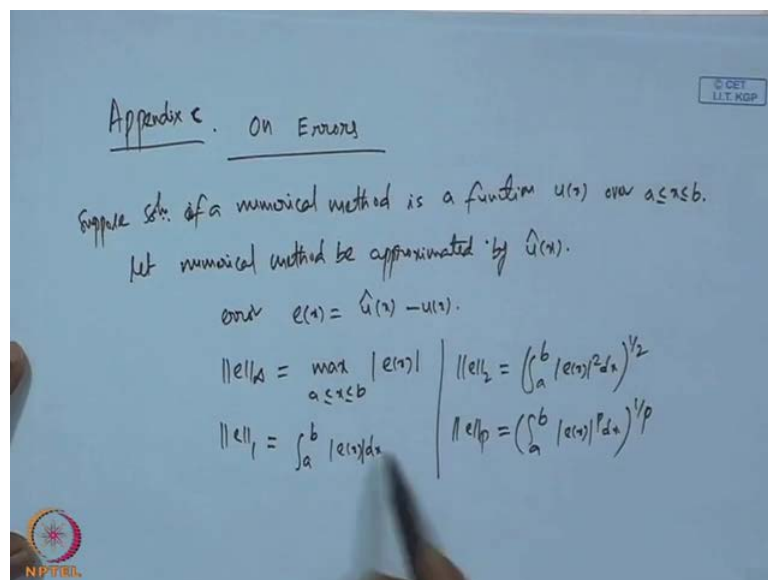 © CET
I.I.T. KGP
Appendix C. On Errors
Suppose soln. of a numerical method is a function u(x) over a≤x≤b.
Let numerical method be approximated by û(x).
error e(x) = û(x) - u(x).
||e||∞ = max |e(x)| ||e||₂ = (∫ₐᵇ |e(x)|² dx)^1/2
a≤x≤b
||e||₁ = ∫ₐᵇ |e(x)| dx ||e||p = (∫ₐᵇ |e(x)|ᵖ dx)^1/p
NPTEL